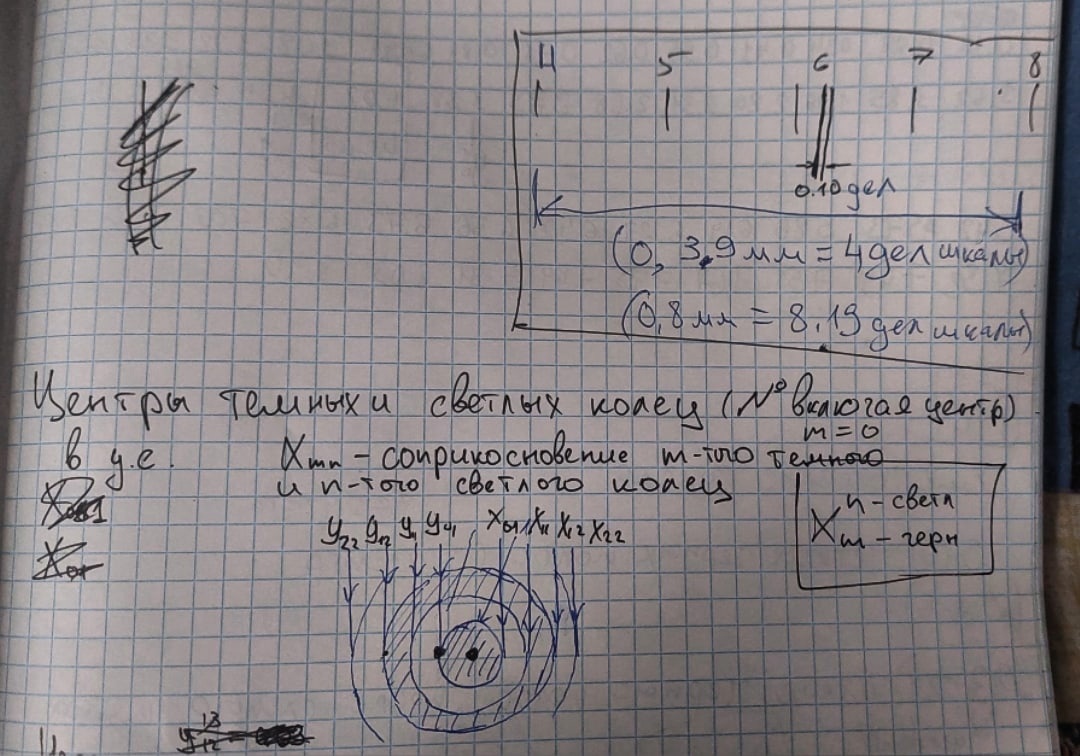 4 5 6 7 8
0.10 дел
(0, 3,9 мм = 4 дел шкалы)
(0,8 мм = 8.19 дел шкалы)
Центры темных и светлых колец (№ включая центр)
m = 0
в у.е. Xmn – соприкосновение m-того темного
и n-того светлого колец
n – светл
Xm – черн
y22 y12 y11 y01 x01 x11 x12 x22